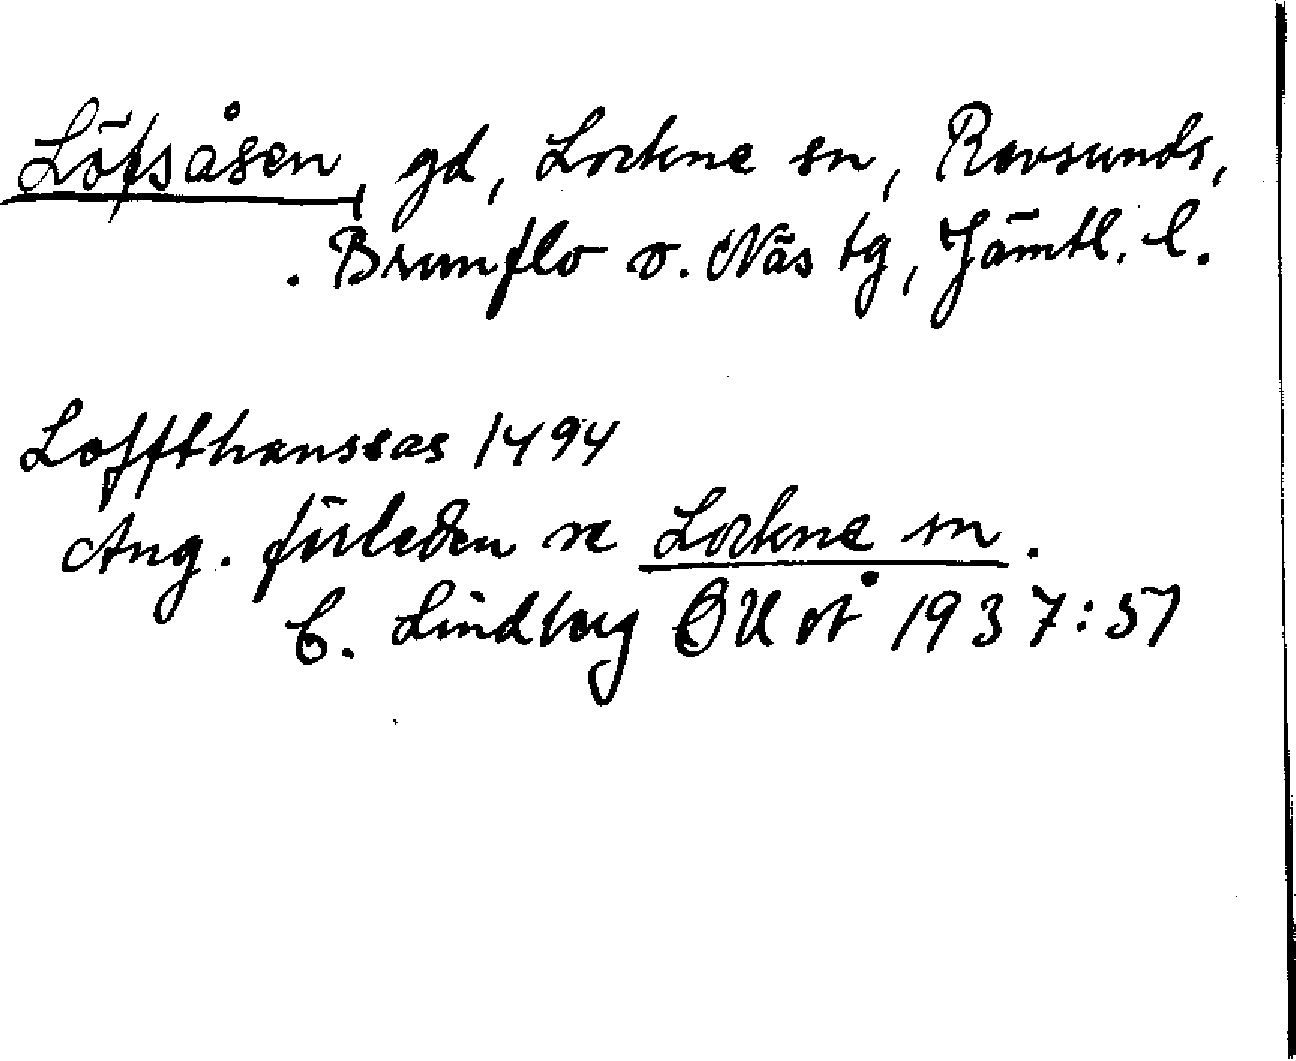 Löfsåsen, gd, Lockne sn, Revsunds,
Brunflo o. Näs tg, Jämtl. l.
Loffthanssas 1494
Ang. förleden se Lockne sn.
C. Lindberg OUÅ 1937:51